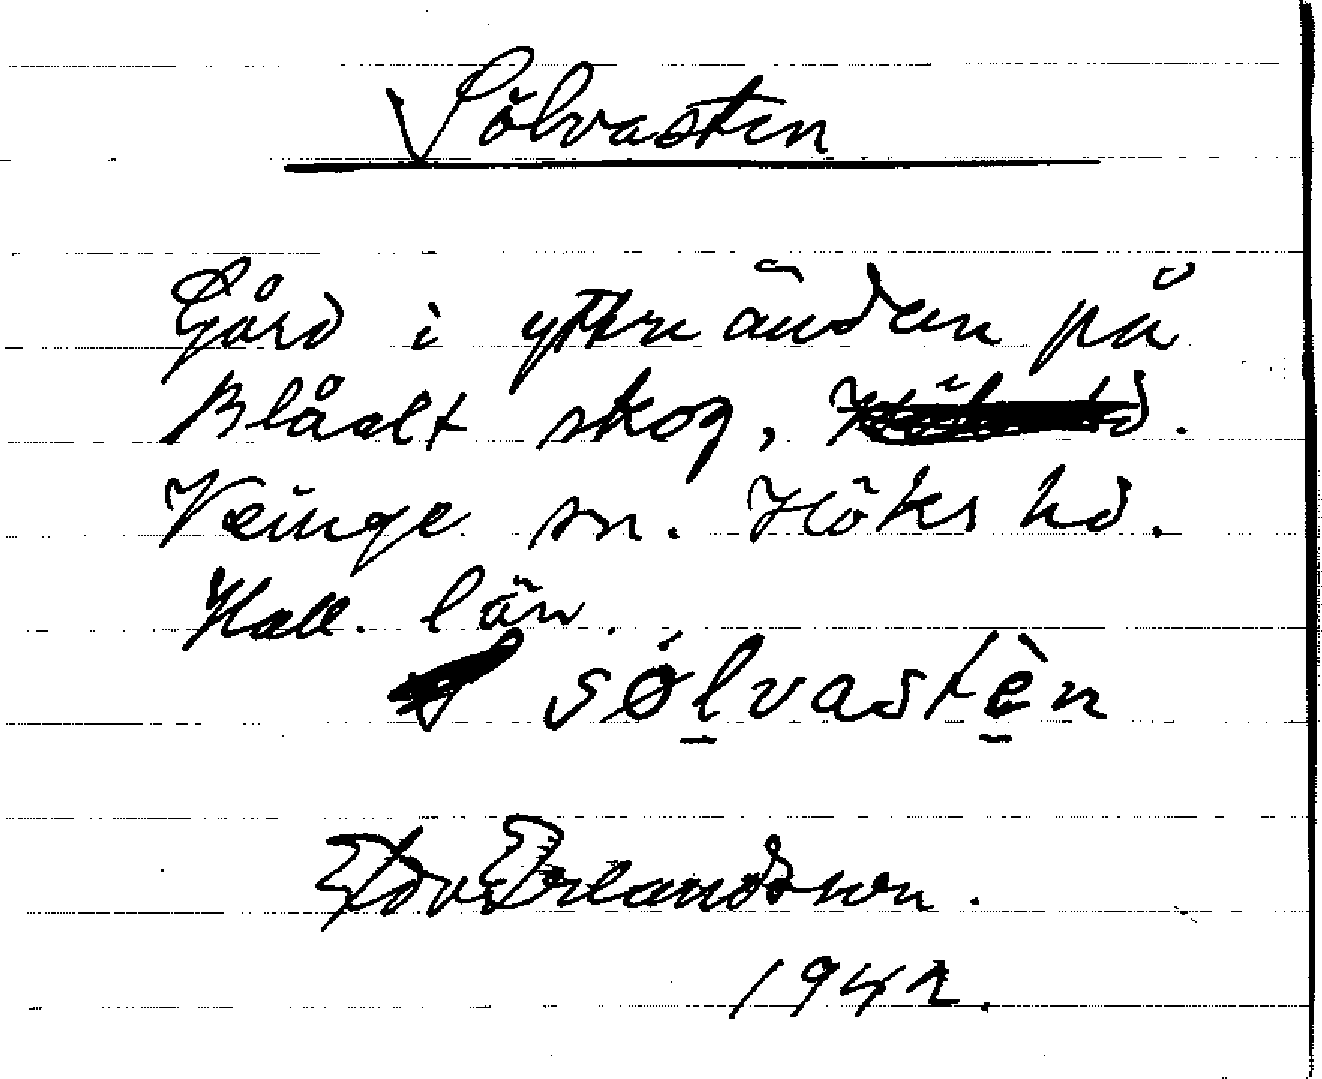 Sölvasten
Gård i yttre änden på
Blåalt skog,
Veinge sn. Höks hd.
Hall. län.
sølvastèn
Edv Erlandsson.
1942.